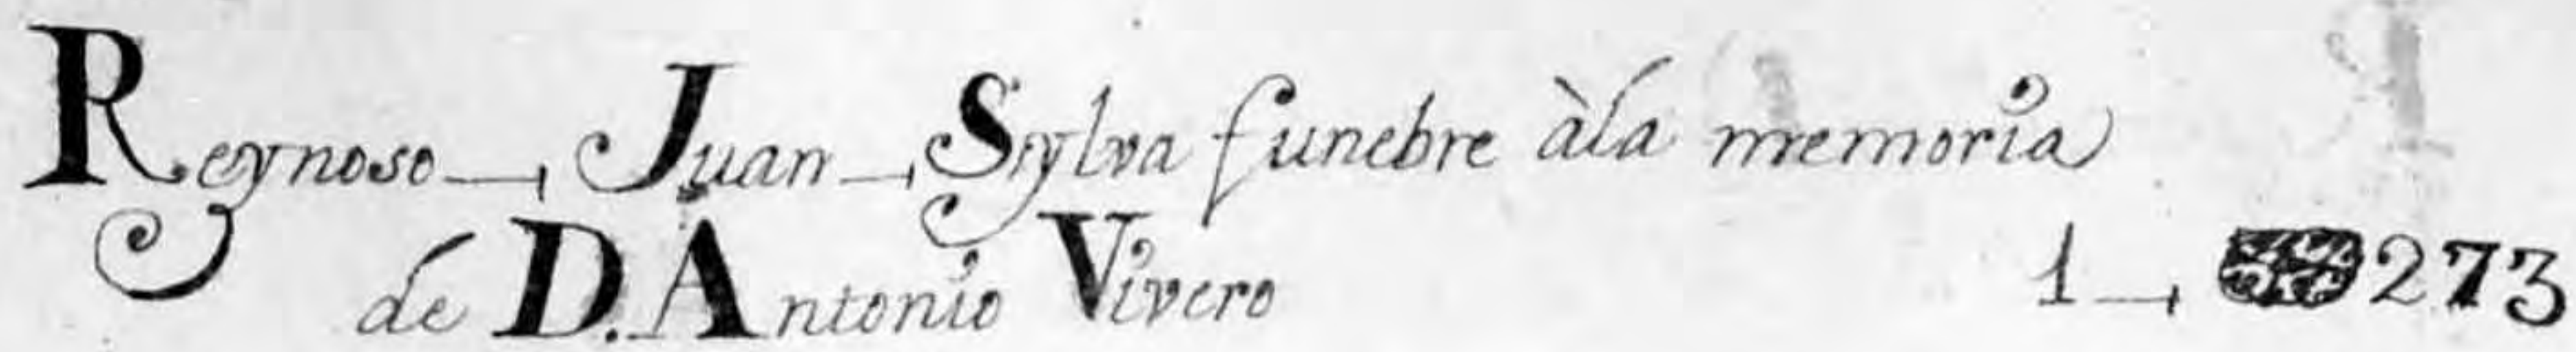 Reynoso — Juan — Sylva funebre àla memoria
de D. Antonio Vivero 1 — 273